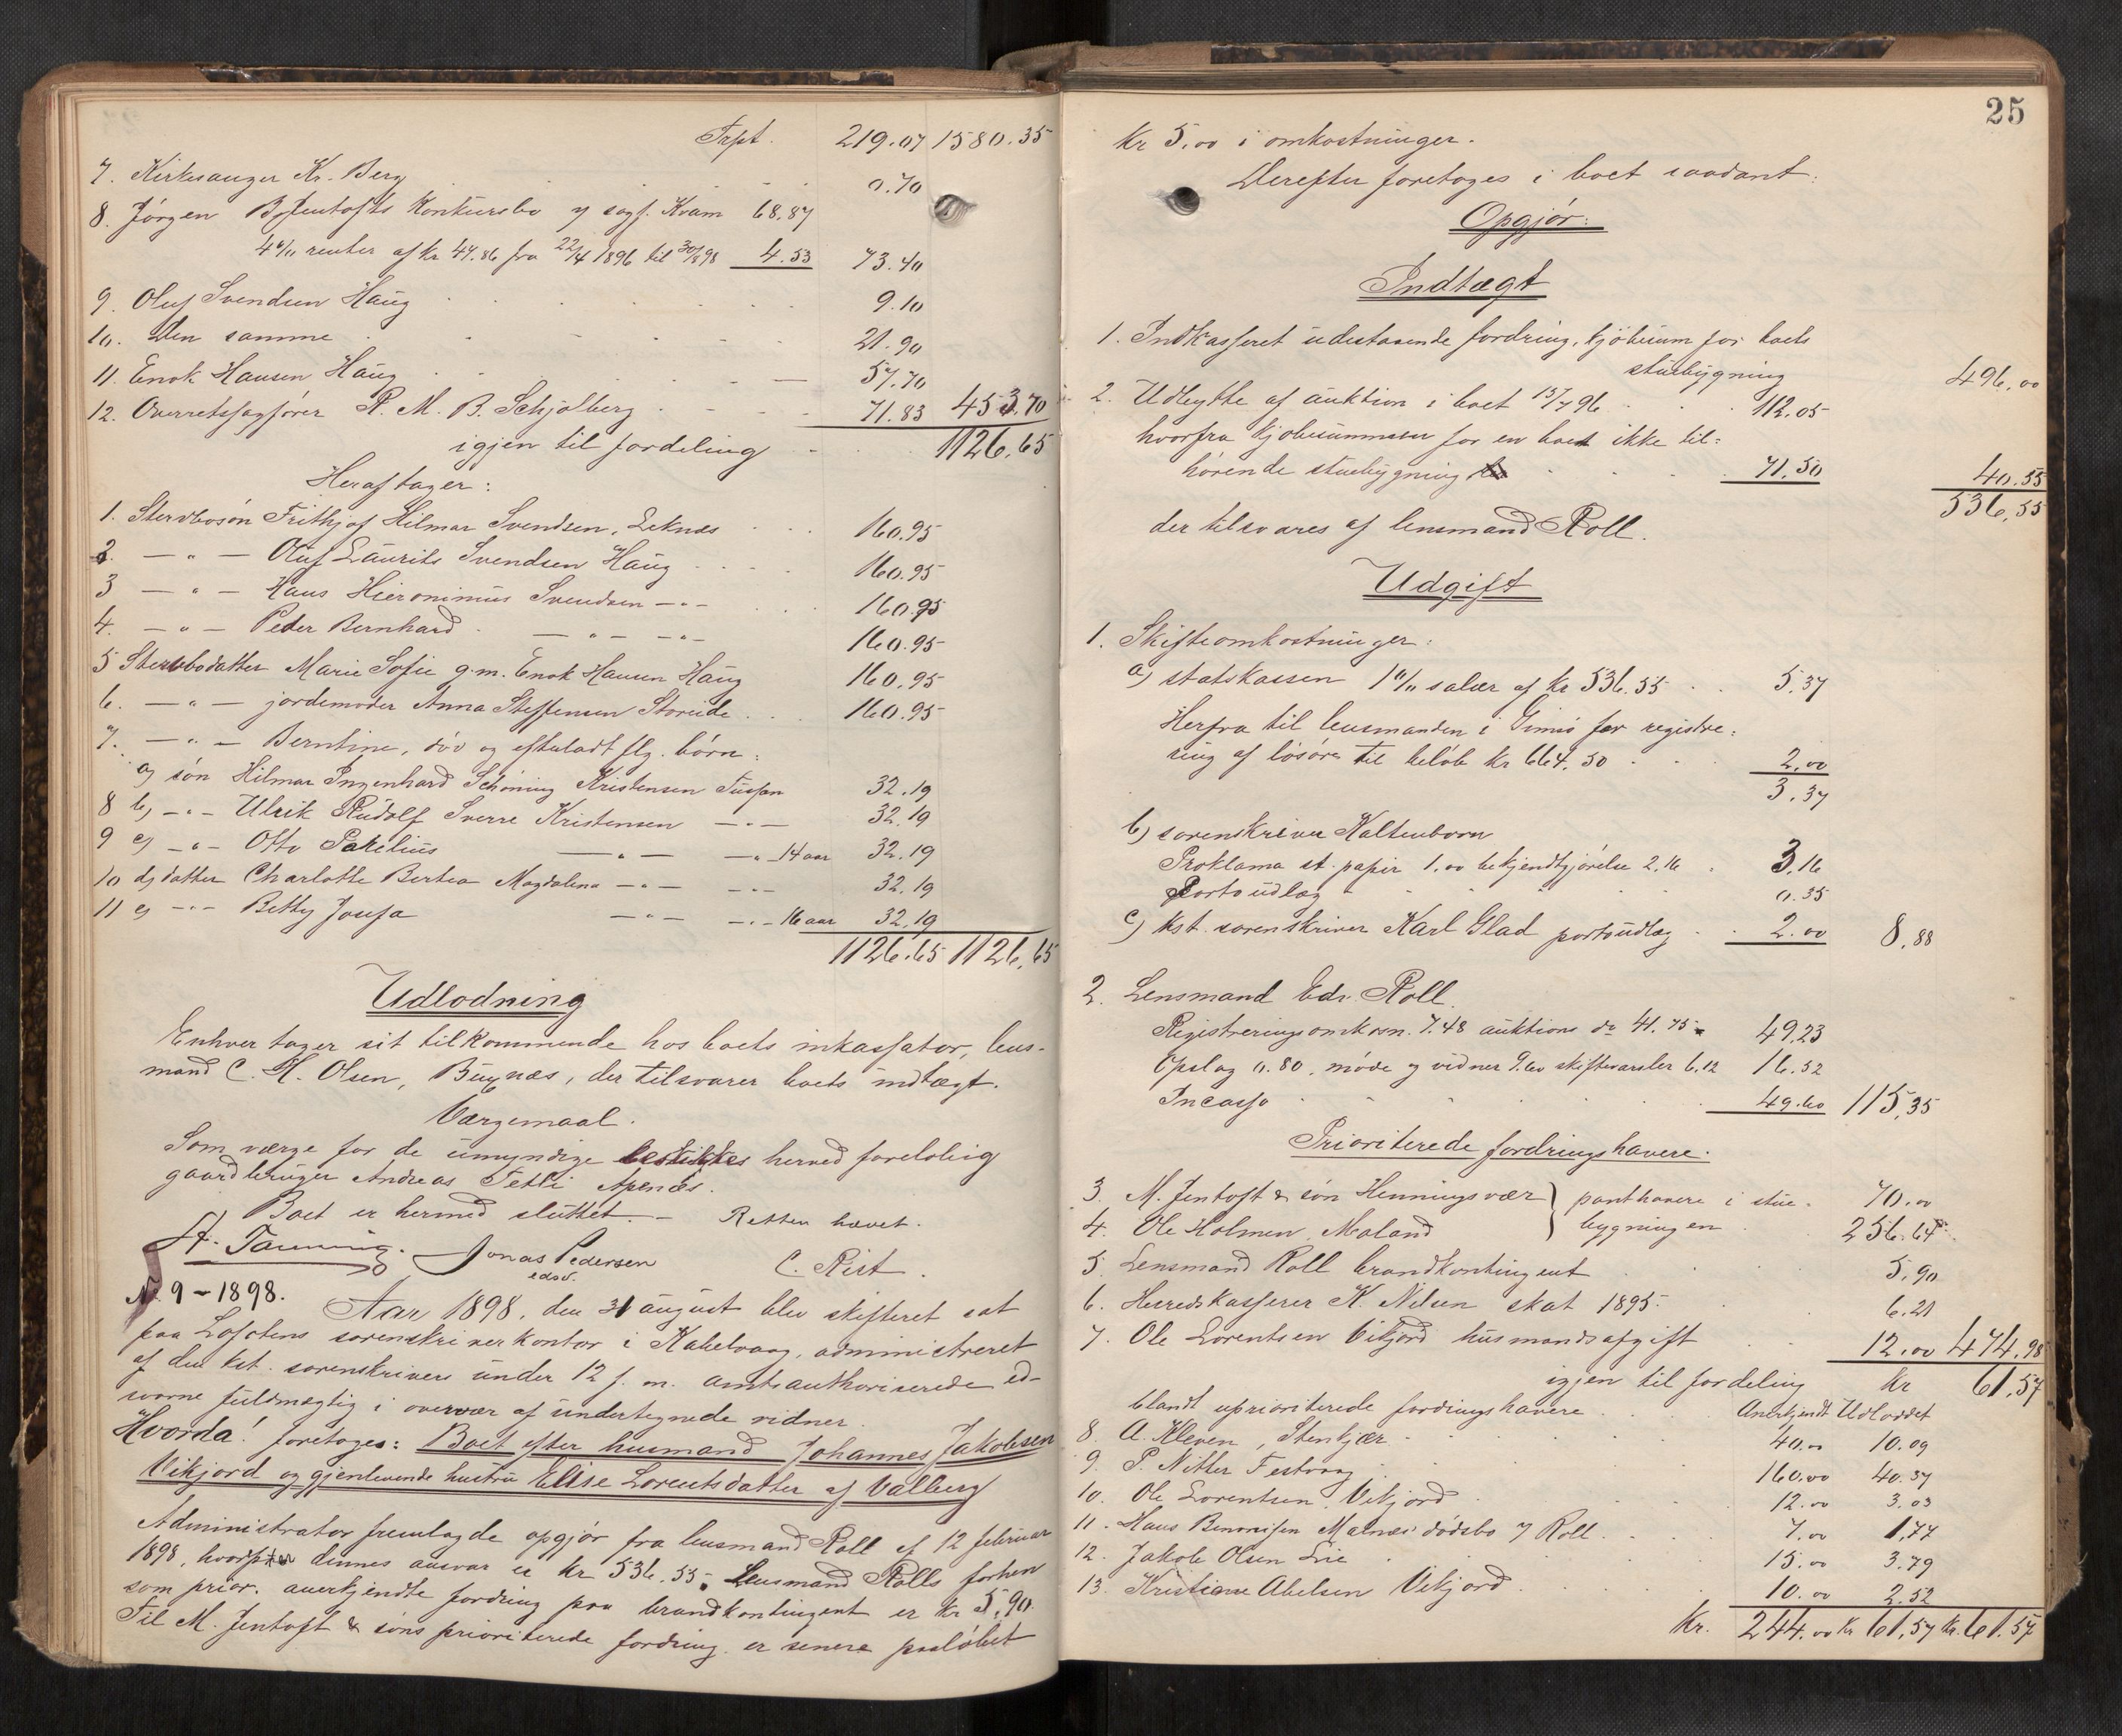 Trpt. 219.07 1580.35
7. Kirkesanger Kr. Berg 0.70
8. Jørgen B. Jentofts Konkursbo v/ sagf. Kvam 68.87
4% renter af kr 47.86 fra 22/4 1896 til 30/8 98 4.53 73.40
9. Oluf Svendsen Haug 9.10
10. Den samme 21.90
11. Enok Hansen Haug 57.70
12. Overretssagfører P. M. B. Schjølberg 71.83 453.70
igjen til fordeling 1126.65
Heraf tager:
1. Stervbosøn Frithjof Hilmar Svendsen, Leknes 160.95
2. — " — Oluf Laurits Svendsen Haug 160.95
3 — " — Hans Hieronimus Svendsen — " — 160.95
4. — " — Peder Bernhard — " — — " — 160.95
5 Stervbodatter Marie Sofie g. m. Enok Hansen Haug 160.95
6. — " — jordemoder Anna Steffensen Storeide 160.95
7. — " — Berntine, død og efterladt flg. børn:
a) søn Hilmar Ingenhard Schøning Kristensen 32.19
8 b) — " — Ulrik Rudolf Sverre Kristensen — " — 32.19
9 c) — " — Otto Parelius — " — — " — 14 aar 32.19
10 d) datter Charlotte Bertea Magdalena — " — — " — 32.19
11 e) — " — Betty Josefa — " — — " — 16 aar 32.19
1126.65 1126.65
Udlodning
Enhver tager sit tilkommende hos boets inkassator, lens-
mand C. H. Olsen, Buxnæs, der tilsvarer boets indtægt.
Værgemaal.
Som værge for de umyndige beskikkes herved foreløbig
gaardbruger Andreas Tetli Apenes.
Boet er hermed sluttet. — Retten hævet.
H. Tanning. Jonas Pedersen C. Rist.
edsv.
No 9 - 1898.
Aar 1898, den 31 august blev skifteret sat
paa Lofotens sorenskriverkontor i Kabelvaag, administreret
af den kst. sorenskrivers under 12 f. m. amtsauthoriserede ed-
svorne fuldmægtig i overvær af undertegnede vidner.
Hvorda! foretoges: Boet efter husmand Johannes Jakobsen
Vikjord og gjenlevende hustru Elise Lorentsdatter af Valberg
Administrator fremlagde opgjør fra lensmand Roll af 12 februar
1898, hvorefter dennes ansvar er kr 536.55. Lensmand Rolls forhen
som prior. anerkjendte fordring paa brandkontingent er kr 5,90.
Til M. Jentoft & søns prioriterede fordring er senere paaløbet
25
kr 5.00 i omkostninger.
Derefter foretoges i boet saadant:
Opgjør:
Indtægt
1. Indkasseret udestaaende fordring, kjøbesum for boets
stuebygning 496,00
2. Udbytte af auktion i boet 15/7 96 112.05
hvorfra kjøbesummen for en boet ikke til-
hørende stuebygning 71.50 40.55
536,55
der tilsvares af lensmand Roll.
Udgift
1. Skifteomkostninger:
a) statskassen 1% salær af kr 536.55 5.37
Herfra til lensmanden i Gimsø for registre-
ring af løsøre til beløb kr 664.50 2,00
3,37
b) sorenskriver Kaltenborn
Proklama st. papir 1.00 bekjendtgjørelse 2,16 3,16
Portoudlæg 0.35
c) kst. sorenskriver Karl Glad portoudlæg 2.00 8,88
2. Lensmand Edv. Roll.
Registreringsomkosn. 7.48 auktions do 41.75 49,23
Opslag 0.80, møde og vidner 9.60 skiftevarsler 6.12 16.52
Incasso 49.60 115,35
Prioriterede fordringshavere.
3. M. Jentoft & søn Henningsvær } panthavere i stue- 70.00
4. Ole Holmen, Moland } bygningen 256.64
5. Lensmand Roll brandkontingent 5,90
6. Herredskasserer K. Nilsen skat 1895. 6.21
7. Ole Lorentsen Vikjord husmandsafgift 12.00 474.98
igjen til fordeling kr 61,57
blandt uprioriterede fordringshavere Anerkjendt Udloddet
8. A. Kleven, Stenkjær 40.00 10.09
9. P. Nitter Festvaag 160.00 40.37
10. Ole Lorentsen, Vikjord 12.00 3.03
11. Hans Benonisen Malnes dødsbo v/ Roll 7.00 1,77
12. Jakob Olsen Lie 15.00 3.79
13. Kristian Abelsen Vikjord 10.00 2.52
Kr. 244.00 kr 61,57 kr. 61.57